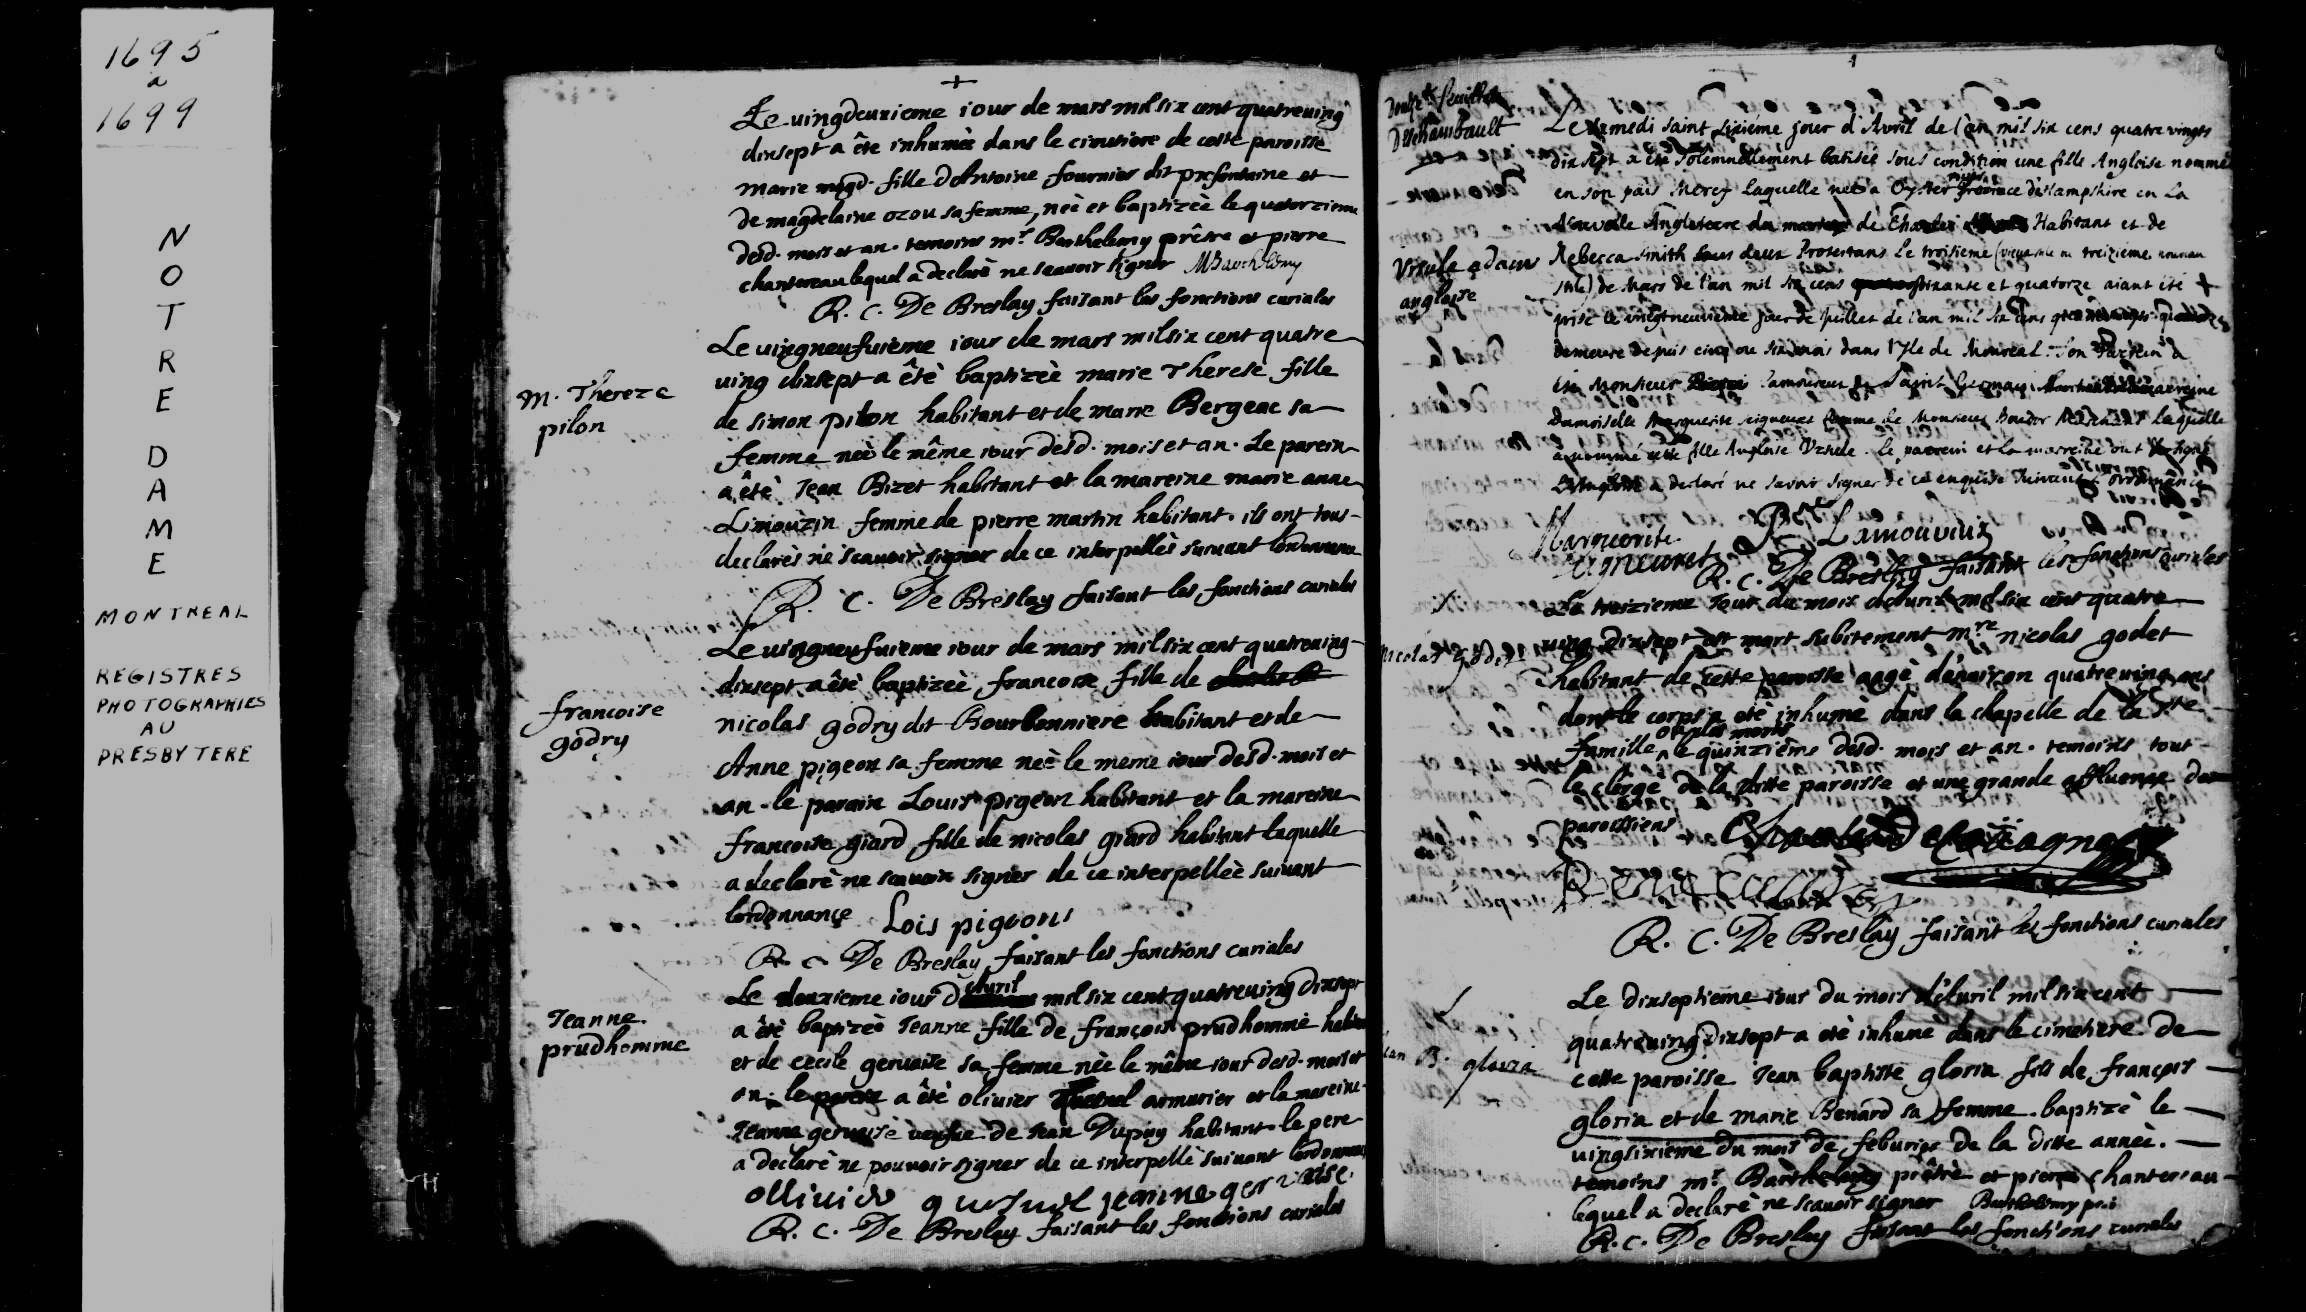 1695
a
1699
NOTRE DAME
MONTREAL
REGISTRES
PHOTOGRAPHIES
AU
PRESBYTERE
Le vingdeuxieme iour de mars mil six cent quatreuing
dixsept a ête inhumèe dans le cimetiere de cette paroisse
marie magd. fille dAntoine fournier dit prefontaine et
de magdelaine ozou sa femme, nèe et baptizèe le quatorzieme
desd. mois et an. temoins mr. Barthelemy prêtre et pierre
chantereau lequel a declarè ne scauoir signer MBarthelemy
R. C. De Breslay faisant les fonctions curiales
M. Thereze
pilon
Le vingneufuieme iour de mars mil six cent quatre
uing dixsept a êtè baptizèe marie Therese fille
de simon pilon habitant et de marie Bergeac sa
femme nèe le même iour desd. mois et an. Le parein
a êtè Jean Bizet habitant et la mareine marie anne
Limouzin femme de pierre martin habitant. ils ont tous
declarès ne scauoir signer de ce interpellès suiuant lordonnance
R. C. De Breslay faisant les fonctions curiales
francoise
godry
Le vingneufuieme iour de mars mil six cent quatreuing
dixsept a êtè baptizèe francoise fille de
nicolas godry dit Bourbonniere habitant et de
Anne pigeon sa femme nèe le meme iour desd. mois et
an. le parain Louis pigeon habitant et la mareine
francoise giard fille de nicolas giard habitant laquelle
a declarè ne scauoir signer de ce interpellèe suiuant
lordonnance Lois pigeons
R. C. De Breslay faisant les fonctions curiales
Jeanne
prudhomme
Le deuxieme iour D auril mil six cent quatreuing dixsept
a êtè baptizèe Jeanne fille de francois prudhomme habitant
et de cecile geruaise sa femme nèe le même iour desd. mois et
an. le parein a êtè olivier armurier et la mareine
Jeanne geruaise veufue de Jean Dupuy habitant. le pere
a declarè ne pouvoir signer de ce interpellè suiuant lordonnance
olliuie quesnel jeanne geruaise
R. C. De Breslay faisant les fonctions curiales
feuillet
Deschambault
Vrsule adams
angloise
Le samedi saint sixiéme jour d'Avril de l'an mil six cens quatre vingts
dix sept a été solemnellement batisée sous condition une fille Angloise nommée
en son païs Mercy laquelle neé a Oyster province d'Hampshire en la
Nouvelle Angleterre du mariage de Charles Habitant et de
Rebecca Smith tous deux Protestans le troisieme (vieux stile ou treizieme nouveau
stile) de Mars de l'an mil six cens soixante et quatorze aiant été
prise le vingt neuvieme jour de Juillet de l'an mil six cens quatre vingts quatorze
demeure depuis cinq ou six mois dans l'Isle de Monreal. Son Parrein a
été Monsieur Pierre Lamoureux de Saint Germain mareine
Damoiselle Marguerite seigneuret femme de Monsieur Boudor Marchand laquelle
a nommé cette fille Angloise Vrsule. le parrein et la marreine ont signé
L'Angloise a declaré ne savoir signer de ce enquise suivant l'ordonnance
Marguerite
seigneuret Pre Lamoureux
R. C. De Breslay faisant les fonctions curiales
nicolas godet
Le treizieme iour du mois dauril mil six cent quatre
uing dixsept est mort subitement mre nicolas godet
habitant de cette paroisse agè d'enuiron quatreuing ans
dont le corps a etè inhumè dans la chapelle de la Ste
famille le quinzieme desd. mois et an. temoins tout
le clergè de la ditte paroisse et une grande affluence de
paroissiens
R. C. De Breslay faisant les fonctions curiales
Jean B. gloria
Le dixseptieme iour du mois d'auril mil six cent
quatreuing dixsept a etè inhumè dans le cimetiere de
cette paroisse Jean baptiste gloria fils de françois
gloria et de marie Benard sa femme. baptizè le
uingsixieme du mois de feburier de la ditte annèe.
temoins mr. Barthelemy prêtre et pierre chantereau
lequel a declarè ne scauoir signer Barthelemy
R. C. De Breslay faisant les fonctions curiales